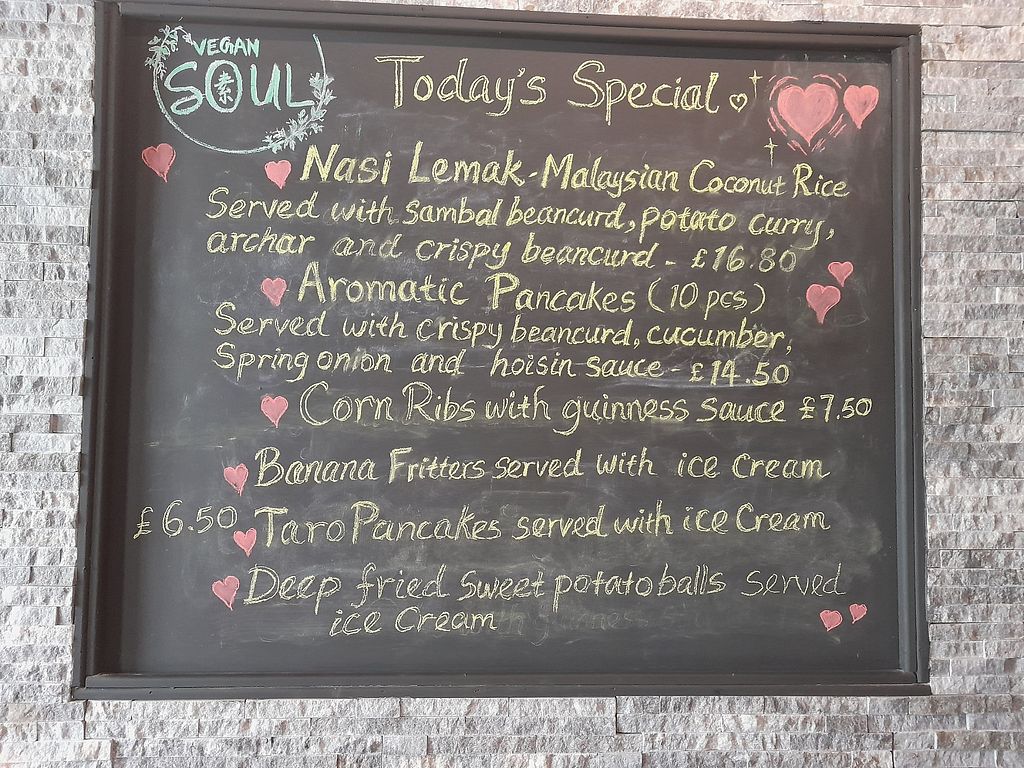 VEGAN
SOUL
素
Today's Special
Nasi Lemak - Malaysian Coconut Rice
Served with sambal beancurd, potato curry,
archar and crispy beancurd - £16.80
Aromatic Pancakes (10 pcs)
Served with crispy beancurd, cucumber,
Spring onion and hoisin sauce - £14.50
Corn Ribs with guinness sauce £7.50
Banana Fritters served with ice Cream
£6.50 Taro Pancakes served with ice Cream
Deep fried sweet potato balls served
ice Cream